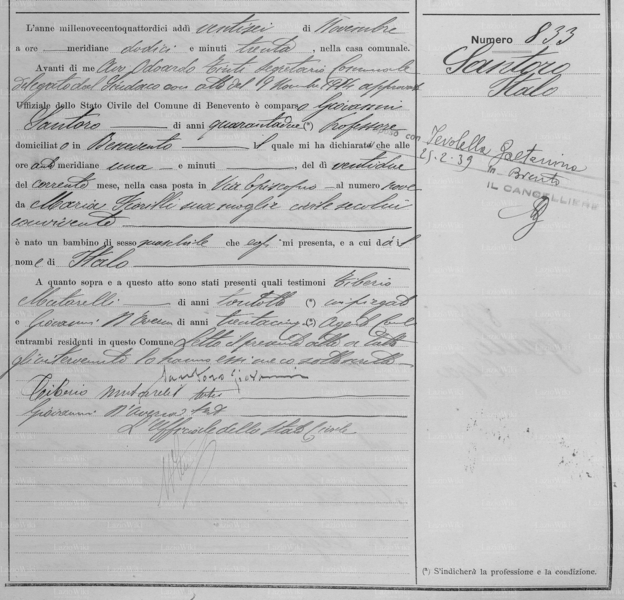 L'anno millenovecentoquattordici addì ventisei di Novembre
a ore meridiane dodici e minuti trenta, nella casa comunale.
Avanti di me Cav. Odoardo segretario Comunale
delegato dal Sindaco con atto del 1914 approvato
Uffiziale dello Stato Civile del Comune di Benevento è comparso Giovanni
Santoro di anni quarantadue (*) Professore
domiciliato in Benevento il quale mi ha dichiarato che alle
ore meridiane una e minuti, del dì ventidue
del corrente mese, nella casa posta in Via Episcopio al numero nove
da Maria sua moglie seco lui
convivente
è nato un bambino di sesso maschile che egli mi presenta, e a cui dà il
nome di Italo
A quanto sopra e a questo atto sono stati presenti quali testimoni Tiberio
Mutarelli di anni (*) impiegato
e Giovanni D'Aversa di anni trentacinque (*)
entrambi residenti in questo Comune. Letto il presente atto a tutti
gl'intervenuti lo hanno essi meco sottoscritto
Santoro Giovanni
Tiberio Mutarelli teste
Giovanni D'Aversa
L'Ufficiale dello Stato Civile
Numero 833
Santoro
Italo
con Tevolella Gaetanina
25.2.39 in Benevento
IL CANCELLIERE
(*) S'indicherà la professione e la condizione.